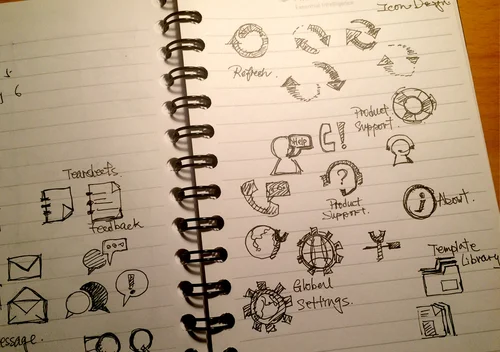 Icon Design
Refresh.
Product
Support.
Help
!
?
Product
Support.
i
About.
Template
Library
Global
Settings.
6
Tearsheets
Feedback
!
essage.